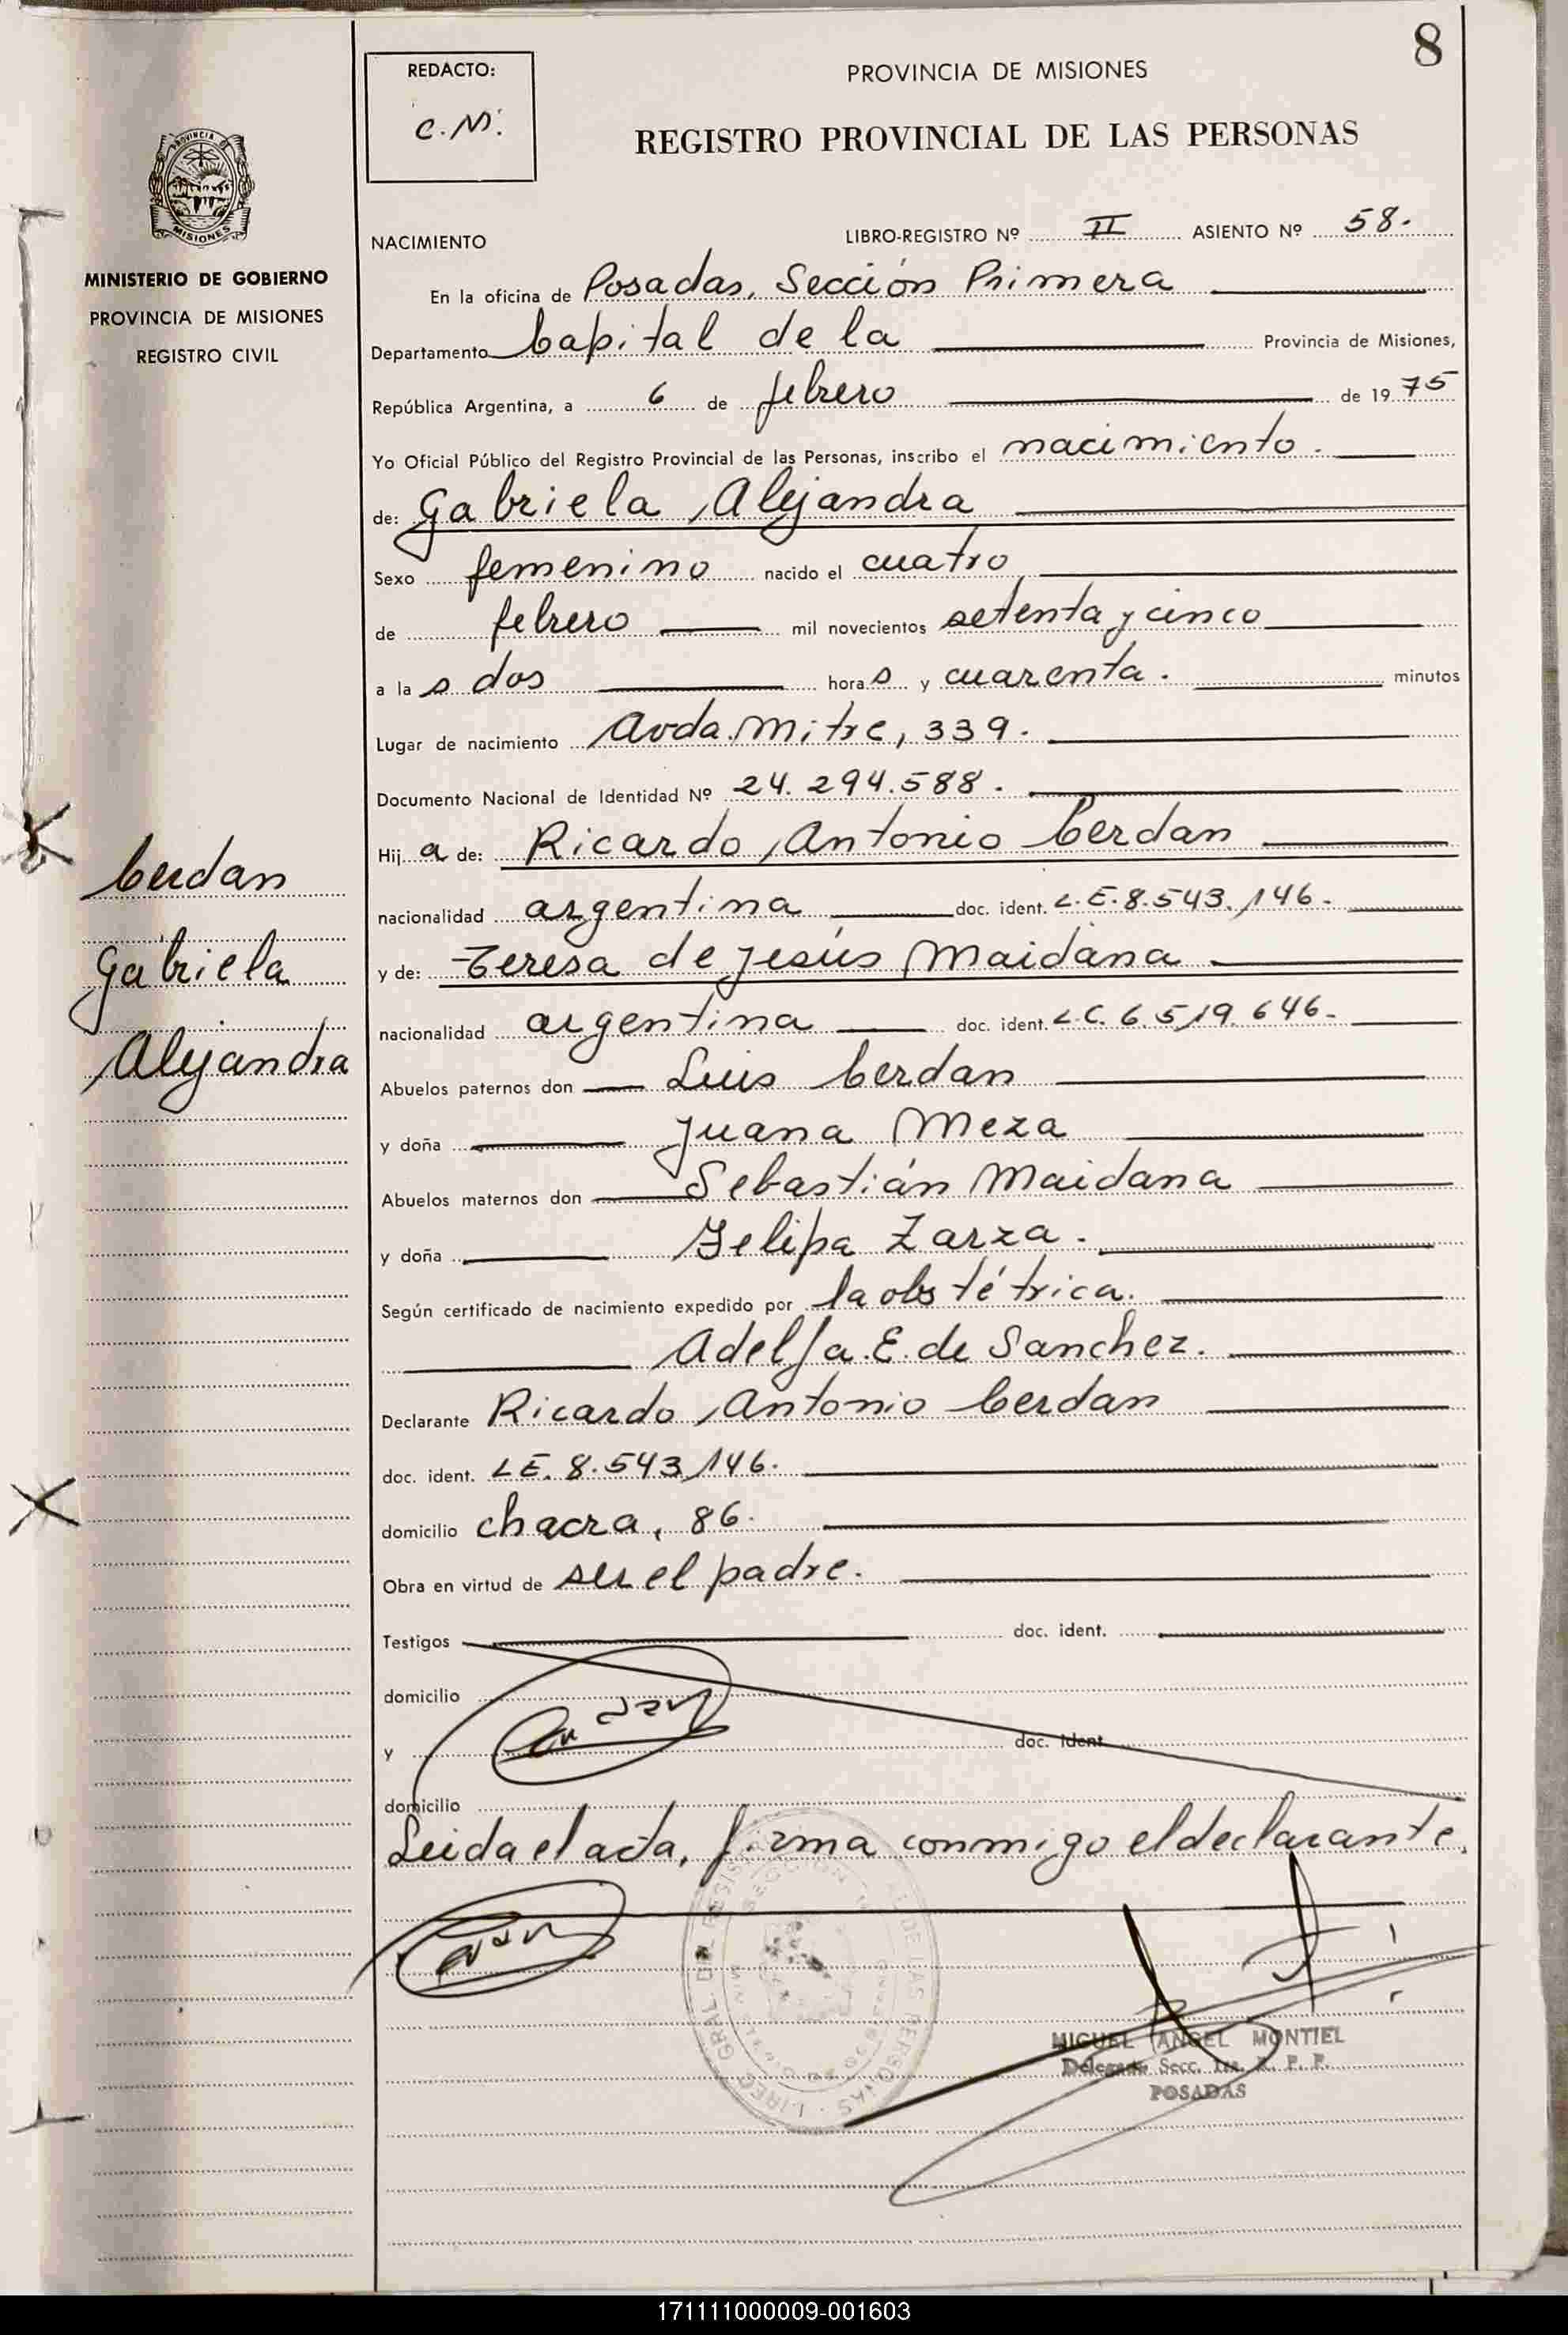 8
REDACTO:
C.M.
PROVINCIA DE MISIONES
REGISTRO PROVINCIAL DE LAS PERSONAS
PROVINCIA
MISIONES
MINISTERIO DE GOBIERNO
PROVINCIA DE MISIONES
REGISTRO CIVIL
NACIMIENTO LIBRO-REGISTRO Nº II ASIENTO Nº 58.
En la oficina de Posadas, Sección Primera
Departamento Capital de la Provincia de Misiones,
República Argentina, a 6 de febrero de 1975
Yo Oficial Público del Registro Provincial de las Personas, inscribo el nacimiento.
de: Gabriela Alejandra
Sexo femenino nacido el cuatro
de febrero mil novecientos setenta y cinco
a las dos horas y cuarenta. minutos
Lugar de nacimiento Avda. Mitre, 339.
Documento Nacional de Identidad Nº 24.294.588.
Hija de: Ricardo Antonio Cerdan
nacionalidad argentina doc. ident. L.E. 8.543.146.
y de: Teresa de Jesús Maidana
nacionalidad argentina doc. ident. L.C. 6.519.646.
Abuelos paternos don Luis Cerdan
y doña Juana Meza
Abuelos maternos don Sebastián Maidana
y doña Felipa Zarza.
Según certificado de nacimiento expedido por la obstétrica.
Adelfa E. de Sanchez.
Declarante Ricardo Antonio Cerdan
doc. ident. L.E. 8.543.146.
domicilio chacra, 86.
Obra en virtud de ser el padre.
Testigos doc. ident.
domicilio
y doc. ident
domicilio
Leida el acta, firma conmigo el declarante,
Cerdan
Gabriela
Alejandra
MIGUEL ANGEL MONTIEL
Delegado Secc. 1ra. R. P. P.
POSADAS
171111000009-001603